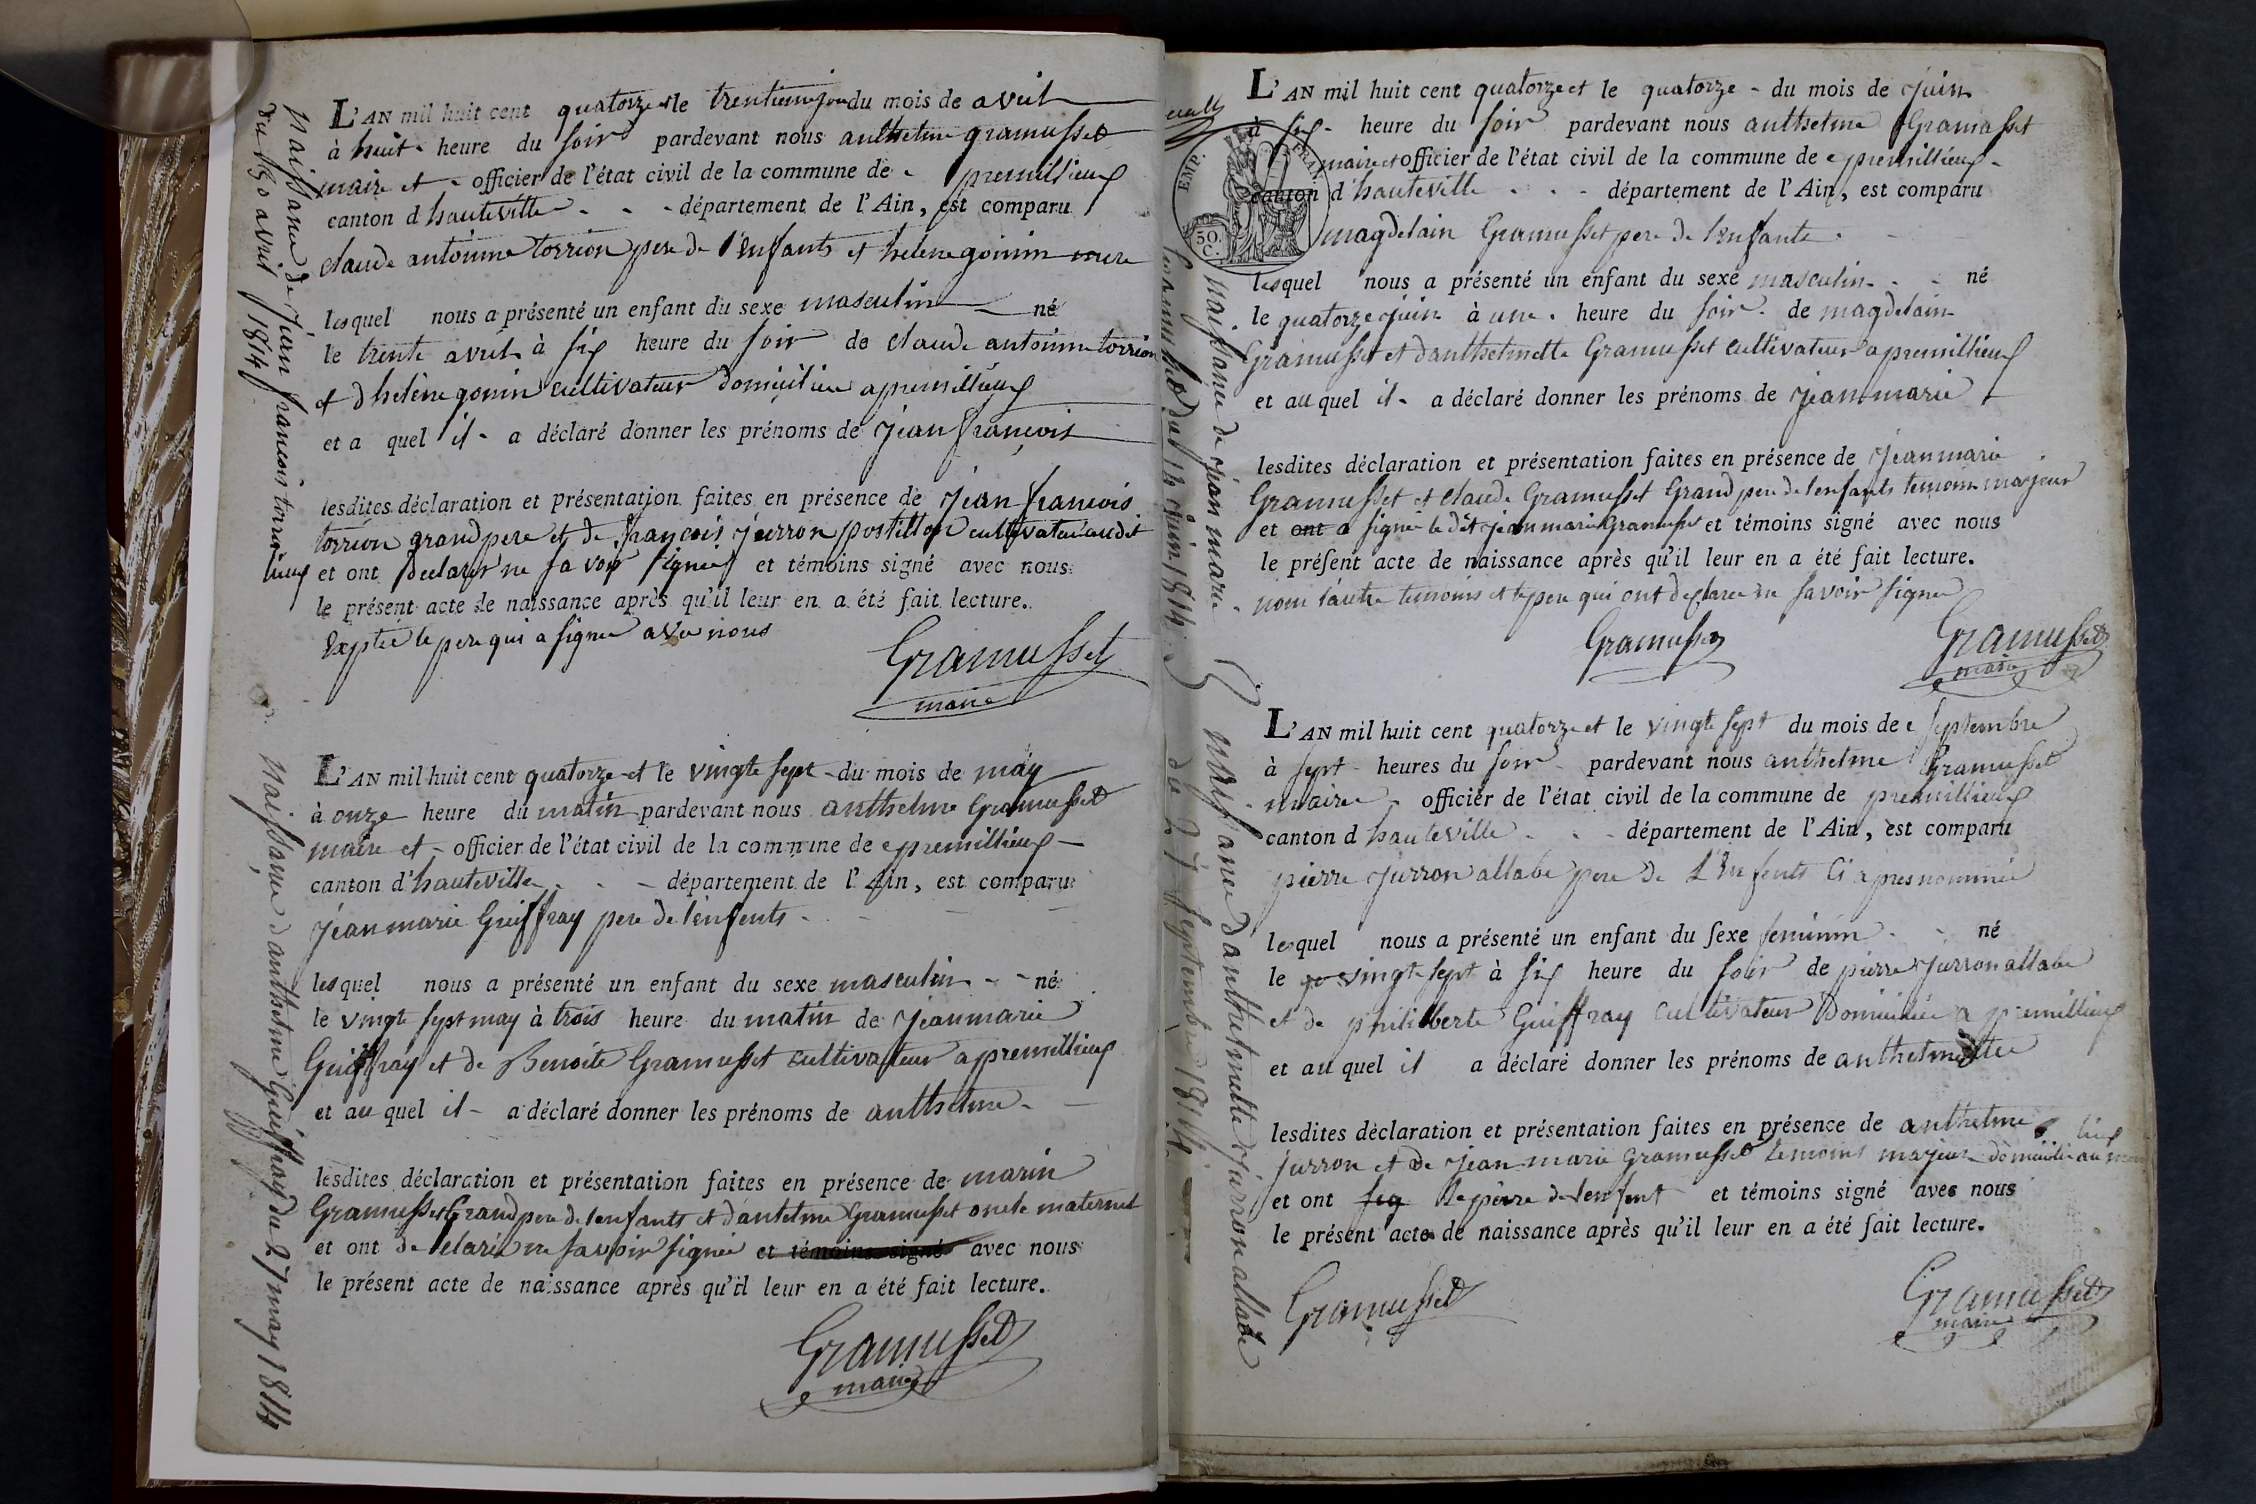 naissance de jean francois torrion
du 30 avril 1814
L'AN mil huit cent quatorze et le trentieme jour du mois de avril
à huit heure du soir pardevant nous anthelme gramusset
maire et officier de l'état civil de la commune de premillieux
canton d'hauteville département de l'Ain, est comparu
claude antoinne torrion pere de l'enfants et helene goinin mere
lesquel nous a présenté un enfant du sexe masculin né
le trente avril à six heure du soir de claude antoinne torrion
et d'helène gonin cultivateur domicilieu a premillieux
et a quel il a déclaré donner les prénoms de jean francois
lesdites déclaration et présentation faites en présence de jean francois
torrion grand pere et de francois jurron postillon cultivateur audit
lieux et ont declarer ne savoir signier et témoins signé avec nous
le présent acte de naissance après qu'il leur en a été fait lecture.
exptée le pere qui a signer avec nous
Gramusset
maire
naissance d'anthelme Guiffray du 27 may 1814
L'AN mil huit cent quatorze et le vingte sept du mois de may
à onze heure du matin pardevant nous anthelme Gramusset
maire et officier de l'état civil de la commune de premillieux
canton d'hauteville département de l'Ain, est comparu
jean marie Guiffray pere de l'enfents
lesquel nous a présenté un enfant du sexe masculin né
le vingte sept may à trois heure du matin de jean marie
Guiffray et de Benoite Gramusset cultivateur a premillieux
et au quel il a déclaré donner les prénoms de anthelme
lesdites déclaration et présentation faites en présence de marin
Gramusset Grand pere de l'enfants et d'antelme Gramusset oncle maternel
et ont declarée ne savoir signée et témoins signé avec nous
le présent acte de naissance après qu'il leur en a été fait lecture.
Gramusset
maire
EMP. FRAN.
50.
C.
naissance de jean marie
Gramusset du 14 juin 1814
L'AN mil huit cent quatorze et le quatorze du mois de juin
à six heure du soir pardevant nous anthelme Gramusset
maire et officier de l'état civil de la commune de premillieux
canton d'hauteville département de l'Ain, est comparu
magdelain Gramusset pere de l'enfante
lesquel nous a présenté un enfant du sexe masculin né
le quatorze juin à une heure du soir de magdelain
Gramusset et d'anthelmette Gramusset cultivateur a premillieux
et au quel il a déclaré donner les prénoms de jean marie
lesdites déclaration et présentation faites en présence de jean marie
Gramusset et claude Gramusset Grand pere de l'enfants temoin majeur
et ont a signer le dit jean marie Gramusset et témoins signé avec nous
le présent acte de naissance après qu'il leur en a été fait lecture.
nom l'autre temoins et le pere qui ont declaree ne savoir signer
Gramusset
Gramusset
maire
naissance d'anthelmette jurron allabe
du 27 septembre 1814
L'AN mil huit cent quatorze et le vingte sept du mois de septembre
à sept heures du soir pardevant nous anthelme Gramusset
maire officier de l'état civil de la commune de premillieux
canton d'hauteville département de l'Ain, est comparu
pierre jurron allabe pere de l'enfents ci apres nommée
lesquel nous a présenté un enfant du sexe feminin né
le vingte sept à six heure du soir de pierre jurron allabe
et de philiberte Guiffray cultivateur domiciliée a premillieux
et au quel il a déclaré donner les prénoms de anthelmette
lesdites déclaration et présentation faites en présence de anthelme
jurron et de jean marie Gramusset temoins majeur domicilié au meme lieux
et ont sig le pierre de l'enfent et témoins signé avec nous
le présent acte de naissance après qu'il leur en a été fait lecture.
Gramusset
Gramusset
maire